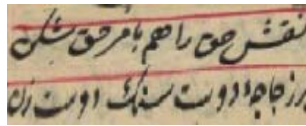 نقش حق را هم بامر حق شکن
بر زجاجهٔ دوست سنگ دوست زن